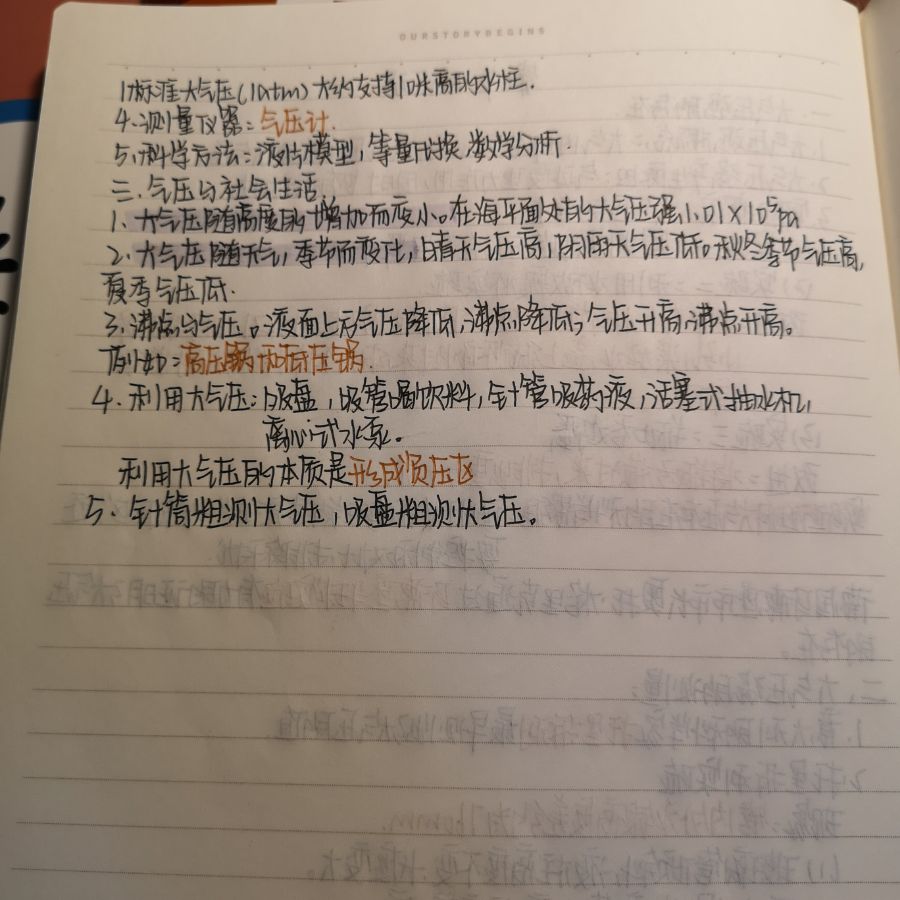 OURSTORYBEGINS
1标准大气压(1atm)大约支持10米高的水柱.
4.测量仪器:气压计.
5.科学方法:液片模型,等量代换,数学分析.
三.气压与社会生活.
1.大气压随高度的增加而变小。在海平面处的大气压强1.01×10⁵pa
2.大气压随天气,季节而变化,晴天气压高,阴雨天气压低。秋冬季节气压高,
夏季气压低.
3.沸点与气压。液面上方气压降低,沸点降低;气压升高,沸点升高。
例如:高压锅和低压锅.
4.利用大气压:吸盘,吸管喝饮料,针管吸药液,活塞式抽水机,
离心式水泵。
利用大气压的本质是形成负压区
5.针筒粗测大气压,吸盘粗测大气压。